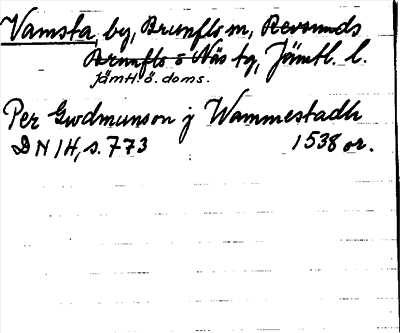 Vamsta, by, Brunflo sn, Revsunds
Brunflo o Näs tg, Jämtl. l.
Jämtl. ö. doms.
Per Gwdmunson j Wammestadh
DN 14, s. 773 1538 or.